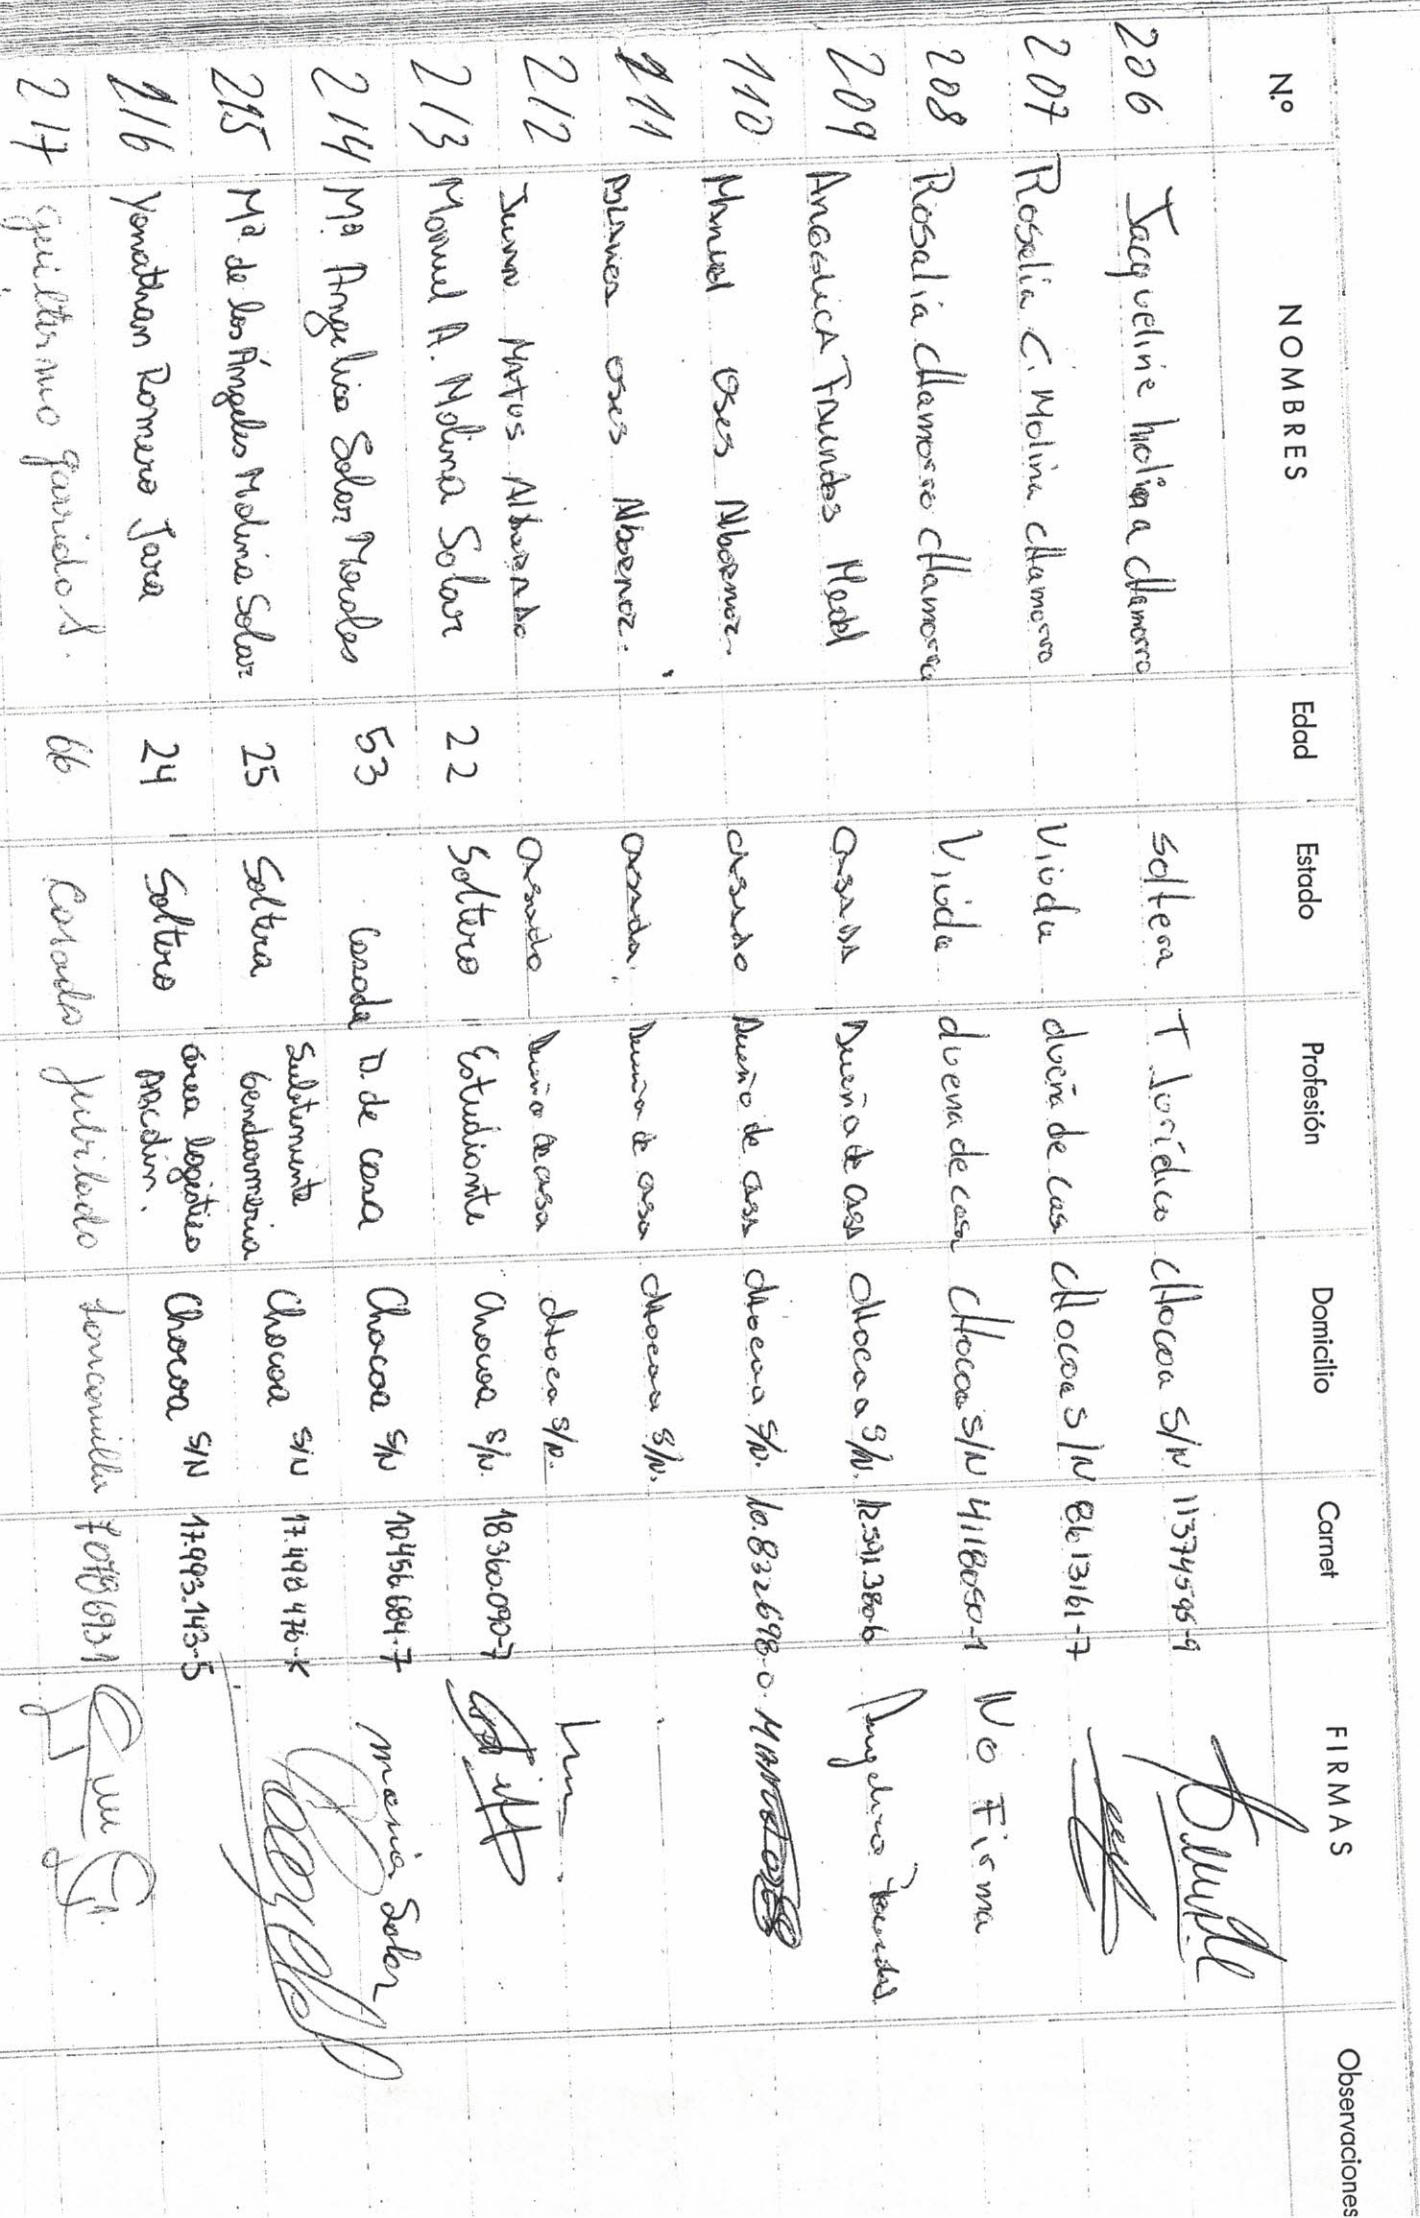 N.º NOMBRES Edad Estado Profesión Domicilio Carnet FIRMAS Observaciones
206 Jacqueline Molina Chamorro soltera T Jurídico Chocoa S/N 11374595-9
207 Rosalia C. Molina Chamorro Viuda dueña de casa Chocoa S/N 8613161-7
208 Rosalia Chamorro Chamorro Viuda duena de casa Chocoa S/N 4118050-1 No Firma
209 Angelica Faundes Medel casada Dueña de casa Chocoa S/N. 12.591.380-6 Angelica Faundes
110 Manuel Oses Albornoz casado Dueño de casa Chocoa S/N. 10.832698-0.
211 Oses Albornoz. casada. Dueña de casa Chocoa S/N.
212 Juan Matus Albornoz casado Dueño de casa Choca S/N.
213 Manuel A. Molina Solar 22 Soltero Estudiante Chocoa S/N. 18360.090-7
214 Mª Angelica Solar Morales 53 Casada D. de casa Chocoa S/N 10456684-7 Maria Solar
215 Mª de los Ángeles Molina Solar 25 Soltera Subteniente Gendarmeria Chocoa S/N 17.498 476-K
216 Yonathan Romero Jara 24 Soltero área logística Chocoa S/N 17.993.143-5
217 Guillermo Garrido S. 66 Casado Jubilado Loncomilla 7078693-1